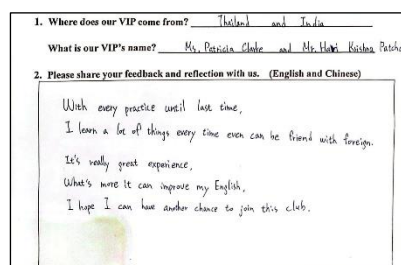 1. Where does our VIP come from? Thailand and India
What is our VIP's name? Ms. Patricia Clarke and Mr. Hari Krishna Patcha
2. Please share your feedback and reflection with us. (English and Chinese)
With every practice until last time,
I learn a lot of things every time even can be friend with foreign.
It's really great experience,
What's more It can improve my English,
I hope I can have another chance to join this club.